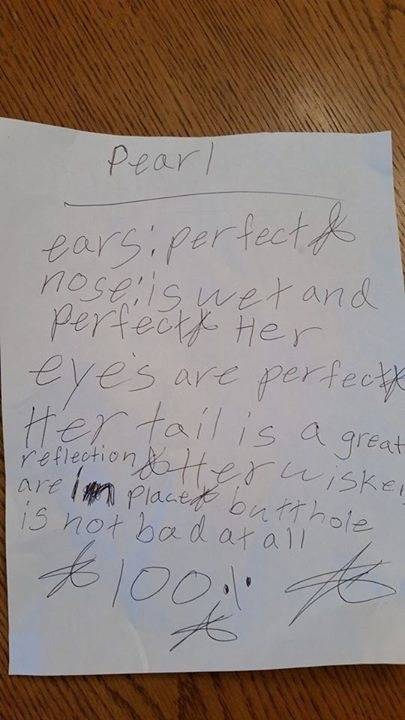 Pearl
ears: perfect
nose: is wet and
perfect Her
eye's are perfect
Her tail is a great
reflection Her wisker
are in place butthole
is not bad at all
100%